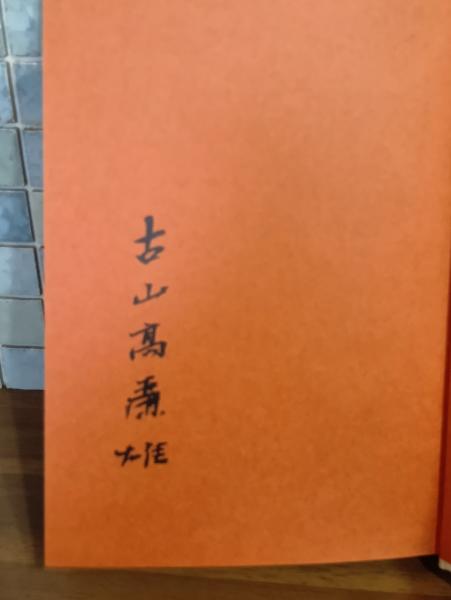 古山高麗雄